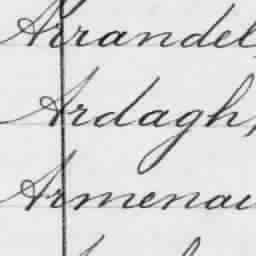 Arrandel
Ardagh,
Armenau